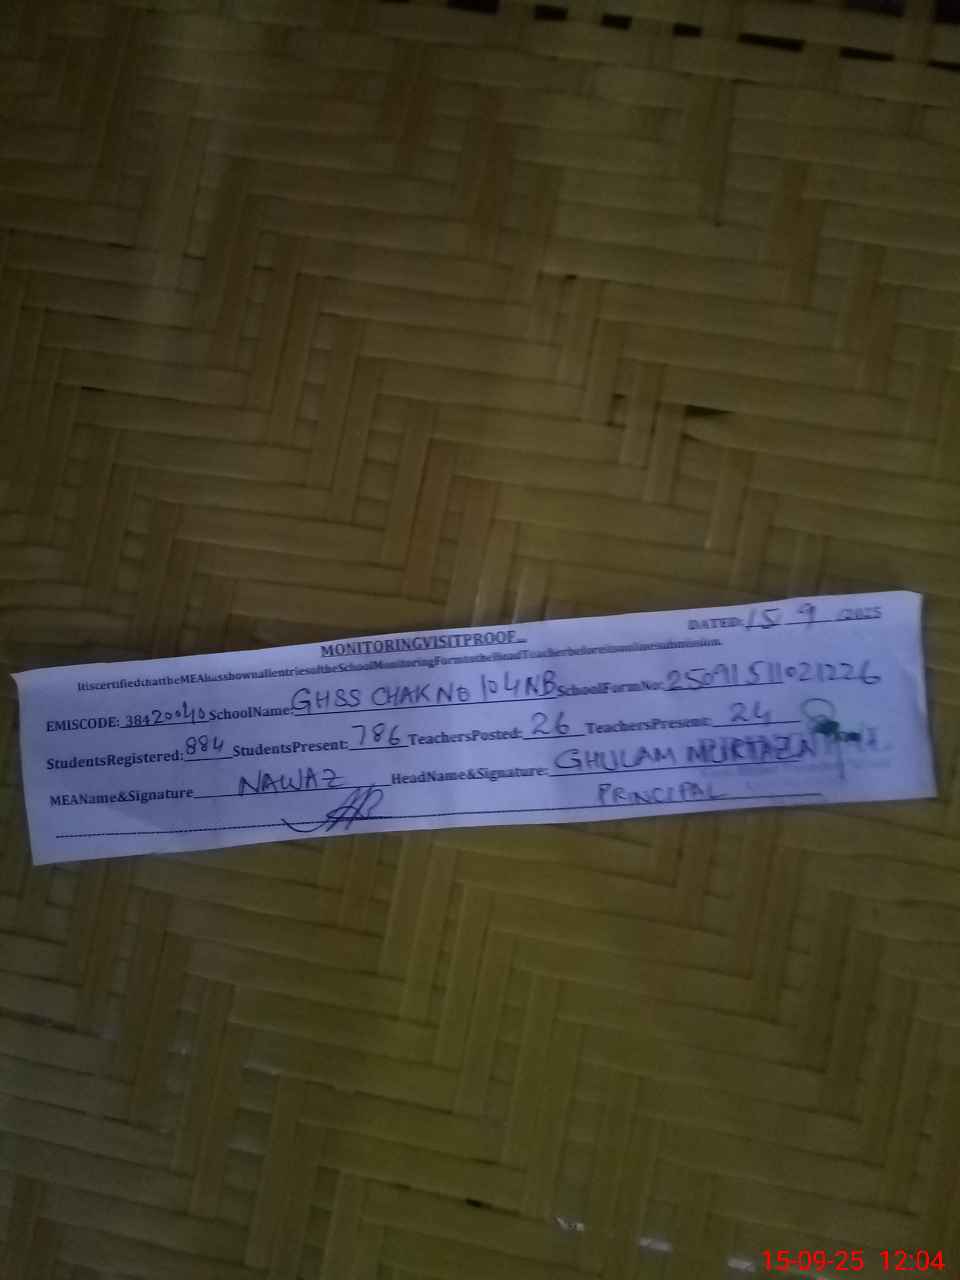 DATED: 15 9 /2025
MONITORINGVISITPROOF
ItiscertifiedthattheMEAhasshownallentriesoftheSchoolMonitoringFormtotheHeadTeacherbeforeitsonlinesubmission.
EMISCODE: 38420040 SchoolName: GHSS CHAK NO 104 NB SchoolFormNo: 25091511021226
StudentsRegistered: 884 StudentsPresent: 786 TeachersPosted: 26 TeachersPresent: 24
MEAName&Signature NAWAZ HeadName&Signature: GHULAM MURTAZA
PRINCIPAL
15-09-25 12:04